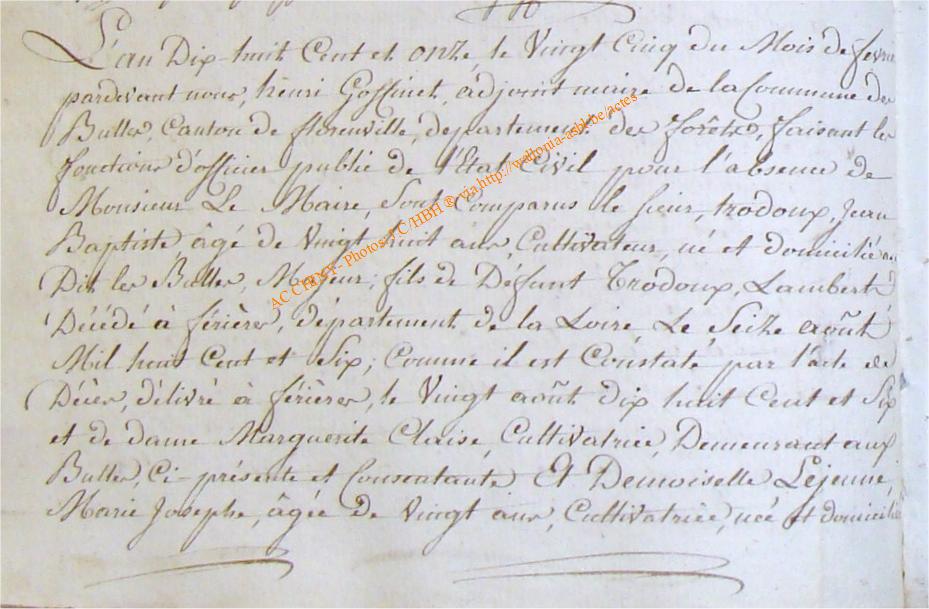 L'an Dix-huit Cent et onze, le Vingt Cinq du Mois de fevrie
pardevant nous, henri Goffinet, adjoint maire de la Commune des
Bulles, Canton de florenville, departement des forêts, faisant les
fonctions d'officier public de l'Etat Civil pour l'absence de
Monsieur Le Maire, Sont Comparus le sieur, trodoux, Jean
Baptiste, âgé de Vingt huit ans, Cultivateur, né et domicilié au
Dit les Bulles, Majeur; fils de Défunt Trodoux, Lambert
Décédé à férières, département de la Loire Le Seize août
Mil huit Cent et Six; Comme il est Constaté par l'acte de
Décès, délivré à férières, le Vingt août dix huit Cent et Six
et de dame Marguerite Claise, Cultivatrice, Demeurant aux
Bulles, Ci-présente et Consentante Et Demoiselle Lejeune,
Marie Josephe, âgée de Vingt ans, Cultivatrice, née et domicili
AC CHINY - Photos J.C/HBH © via http://wallonia-asbl.be/actes